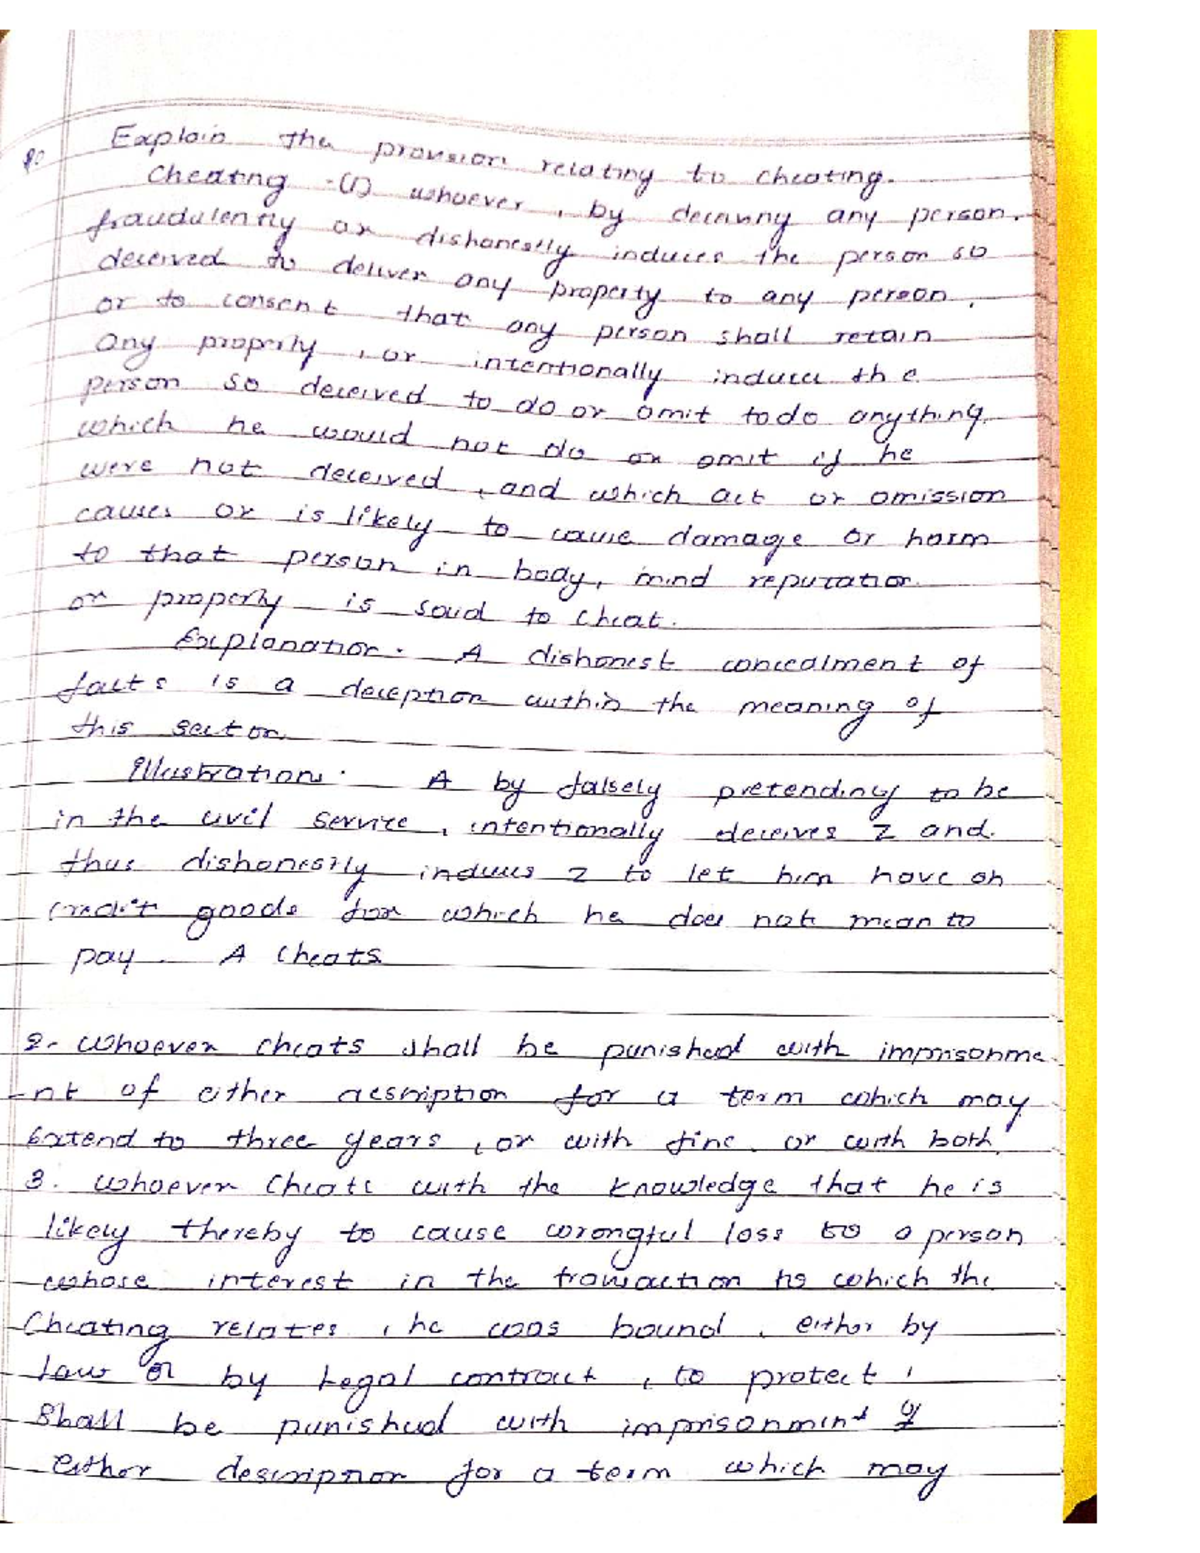 Explain the provision relating to cheating.
Cheating -(1) whoever, by deceiving any person,
fraudulently or dishonestly induces the person so
deceived to deliver any property to any person,
or to consent that any person shall retain
any property, or intentionally induces the
person so deceived to do or omit to do anything
which he would not do or omit if he
were not deceived, and which act or omission
causes or is likely to cause damage or harm
to that person in body, mind reputation
or property is said to cheat.
Explanation. A dishonest concealment of
facts is a deception within the meaning of
this section
Illustrations. A by falsely pretending to be
in the civil service, intentionally deceives Z and
thus dishonestly induces Z to let him have on
credit goods for which he does not mean to
pay. A cheats
2. Whoever cheats shall be punished with imprisonme
-nt of either description for a term which may
Extend to three years, or with fine. or with both.
3. Whoever Cheats with the Knowledge that he is
likely thereby to cause wrongful loss to a person
whose interest in the transaction to which the
Cheating relates, he was bound, either by
law or by Legal contract, to protect,
Shall be punished with imprisonment of
either description for a term which may